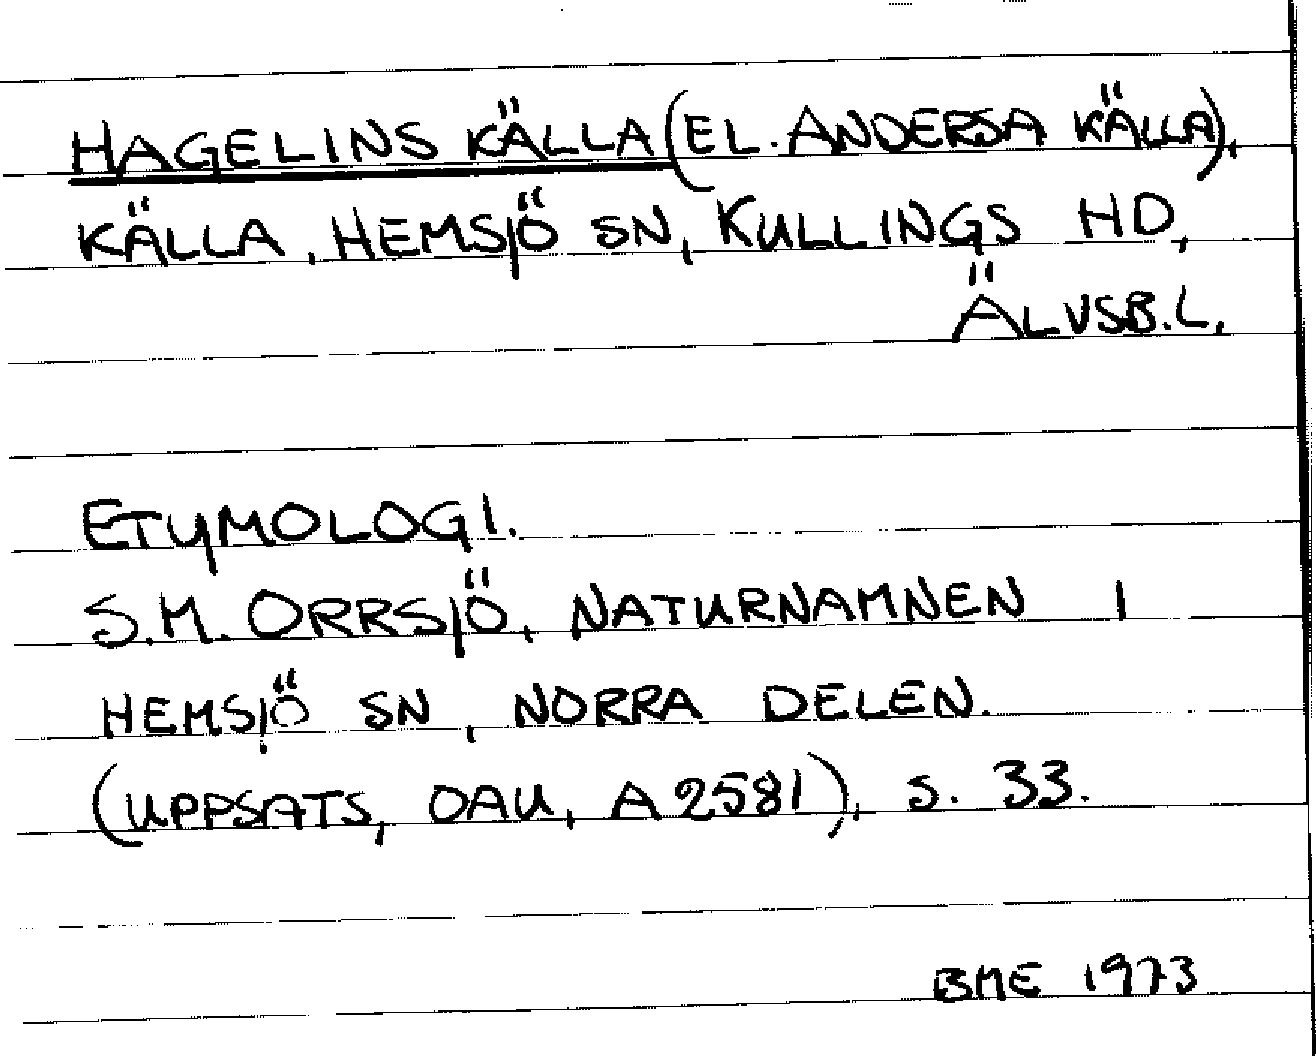 HAGELINS KÄLLA (EL. ANDERSA KÄLLA),
KÄLLA, HEMSJÖ SN, KULLINGS HD,
ÄLVSB. L.
ETYMOLOGI.
S.M. ORRSJÖ, NATURNAMNEN I
HEMSJÖ SN, NORRA DELEN.
(UPPSATS, OAU, A 2581), s. 33.
BME 1973